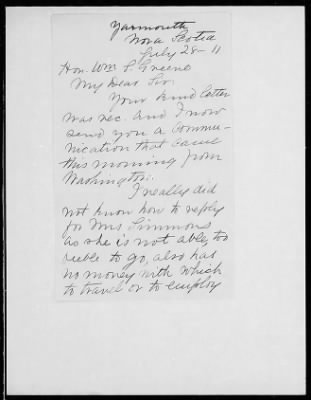 Yarmouth
Nova Scotia
July 28-11
Hon. Wm S Greene
My Dear Sir:
Your kind letter
was rec. and I now
send you a commu-
nication that came
this morning from
Washington.
I really did
not know how to reply
for Mrs Simmons
as she is not able, too
feeble to go, also has
no money with which
to travel or to employ